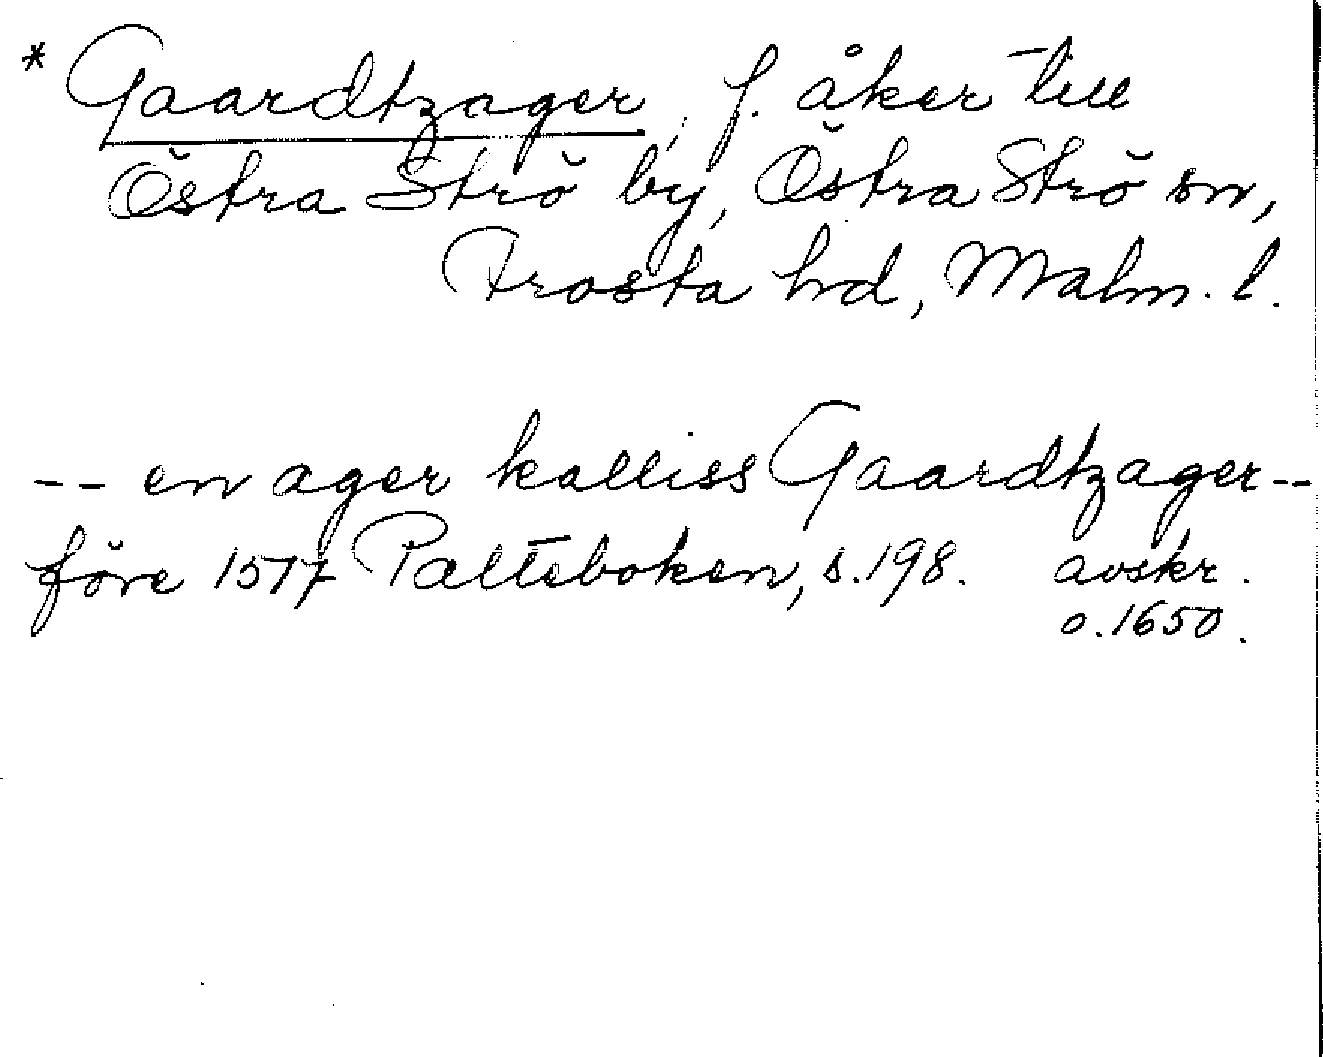 * Gaardtzager, f. åker till
Östra Strö by, Östra Strö sn,
Frosta hd, Malm. l.
-- en ager kalliss Gaardtzager --
före 1517 Palteboken, s. 198. avskr.
o. 1650.